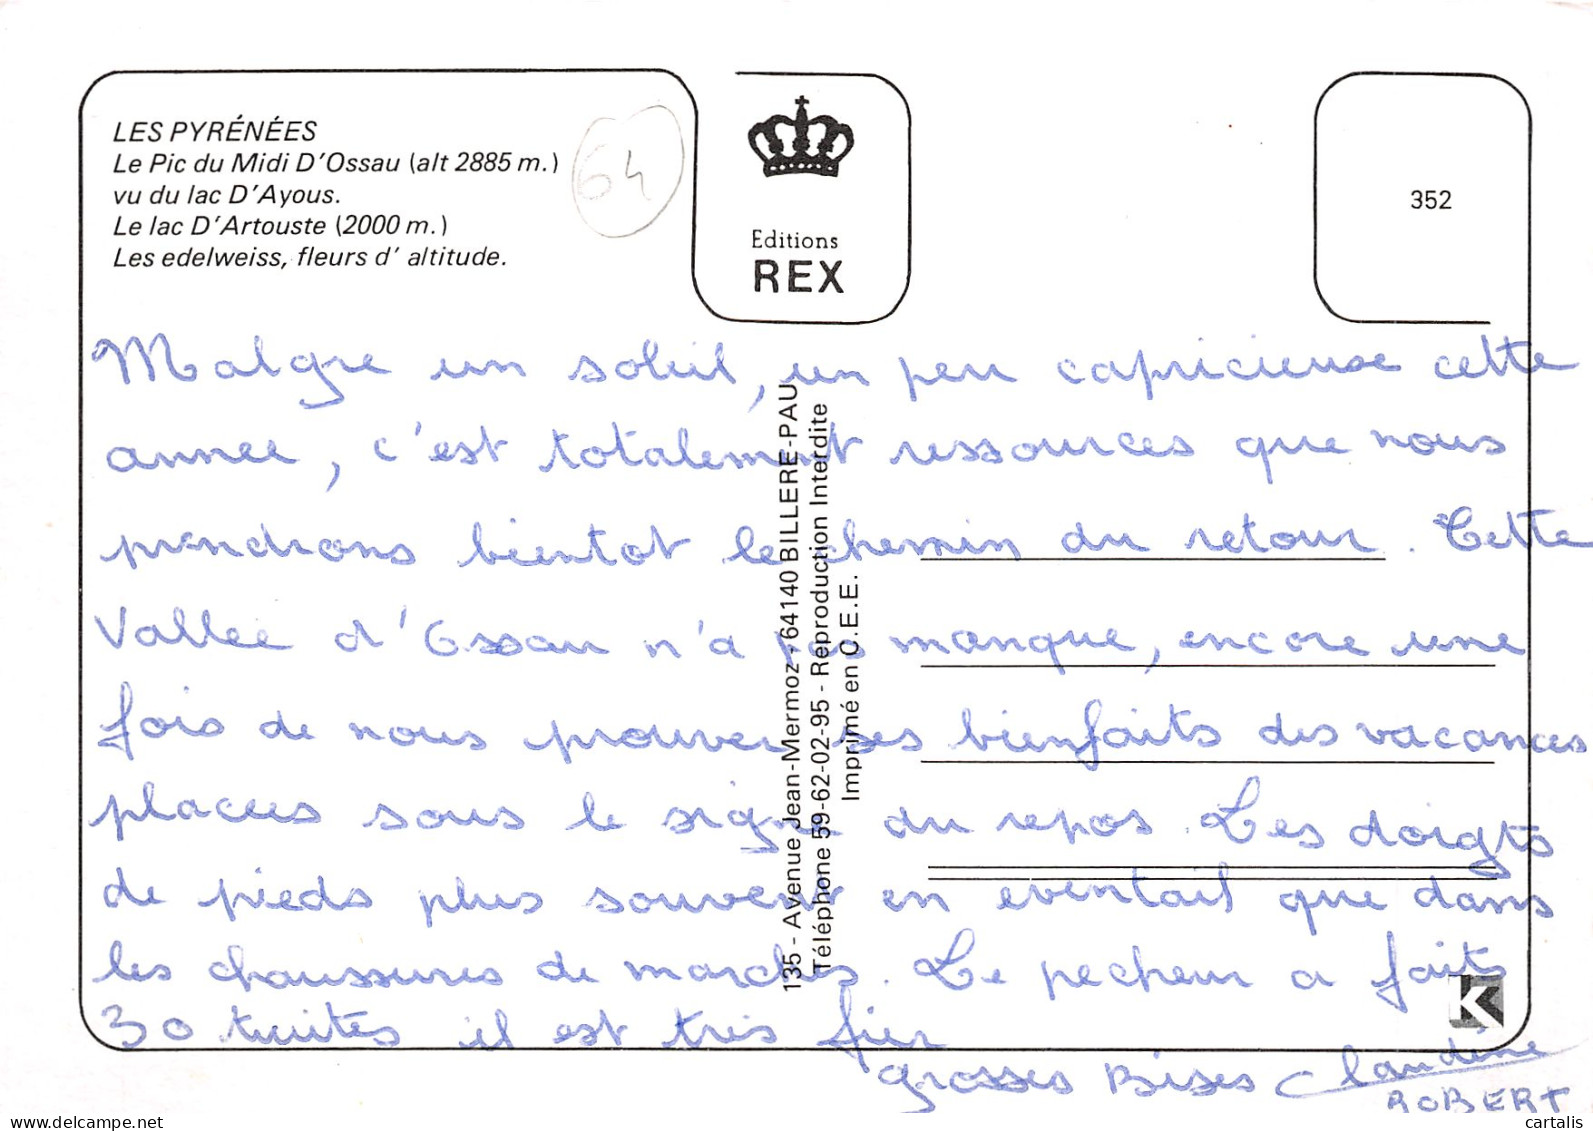 LES PYRÉNÉES
Le Pic du Midi D'Ossau (alt 2885 m.)
vu du lac D'Ayous.
Le lac D'Artouste (2000 m.)
Les edelweiss, fleurs d' altitude.
64
Editions
REX
352
Malgre un soleil, un peu capricieuse cette
annee, c'est totalement ressources que nous
prendrons bientot le chemin du retour. Cette
Vallée d'Ossau n'a pas manque, encore une
fois de nous prouver ses bienfaits des vacances
placees sous le signe du repos. Les doigts
de pieds plus souvent en eventail que dans
les chaussures de marches. Le pecheur a faits
30 truites il est très fier
grosses Bises Claudine
ROBERT
135 - Avenue Jean-Mermoz - 64140 BILLERE-PAU
Téléphone 59-62-02-95 - Reproduction Interdite
Imprimé en C.E.E.
K
delcampe.net
cartalis